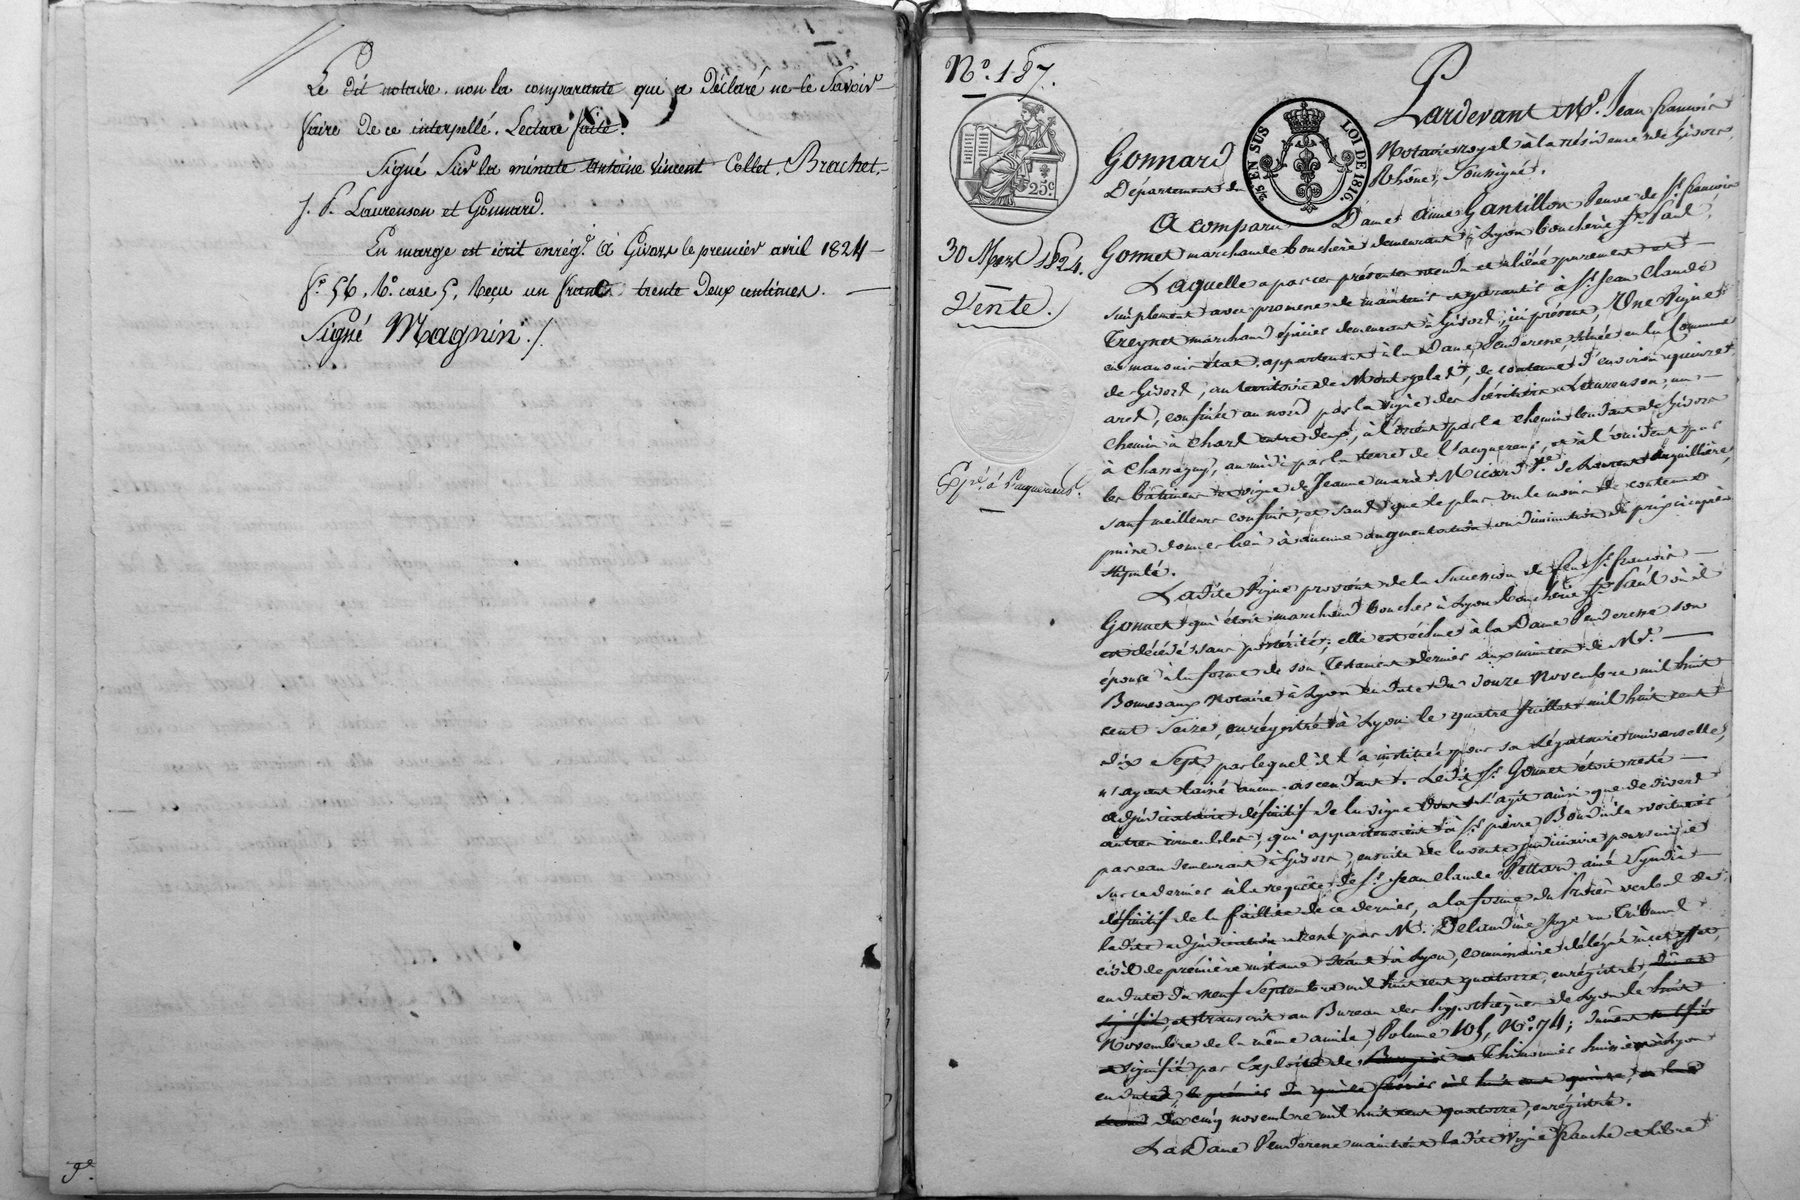 Le dit notaire, non la comparante qui a Déclaré ne le Savoir
faire De ce interpellé. Lecture faite.
Signé Sur la minute antoine vincent Collet, Brachet,
J. P. Laurenson et Gonnard.
En marge est écrit enrég.é à Givors le premier avril 1824
f.º 56, N.º case 5, Reçu un franc trente Deux centimes.
Signé Magnin ./.
J.e
Nº. 157.
25c.
2/5 EN SUS LOI DE 1816.
30 Mars 1824.
Vente.
Exp.é à l'acquéreur.
Pardevant M.e Jean françois
Gonnard Notaire royal à la résidence de Givors
Département du Rhône, Soussigné,
A comparu Dame aimé Gantillon Veuve de S.r françois
Gonnet marchande bouchère demeurant à Lyon boucherie S.t Paul,
Laquelle a par ces présentes vendu et aliéné purement et
simplement avec promesse de maintenir et garantir à S.r Jean Claude
Treynet marchand épicier demeurant à Givors, ici présent, Une Vigne
en mauvais état, appartenant à la Dame Venderesse, située en la Commune
de Givors, au territoire de Montgelas, de contenue d'environ quinze
ares, confinée au nord par la vigne des héritiers Laurenson, un
chemin à chars entre deux, à l'orient par le chemin tendant de Givors
à Chassagny, au midi par la terre de l'acquéreur, et à l'occident par
les bâtiment et vigne de Jeanne marie Micard V.ve de
sauf meilleurs confins, et sans que le plus ou le moins de contenue
puisse donner lieu à aucune augmentation ou diminution du prix ci après
stipulé.
La dite Vigne provient de la Succession de feu S.r françois
Gonnet qui étoit marchand boucher à Lyon boucherie S.t Paul où il
est décédé sans postérité; elle est échue à la Dame Venderesse son
épouse à la forme de son Testament dernier aux minutes de M.e
Bonnevaux Notaire à Lyon en date du douze Novembre mil huit
cent Seize, enrégistré à Lyon le quatre Juillet mil huit cent
dix Sept, par lequel il l'a instituée pour sa légataire universelle,
n'ayant laissé aucun ascendant. Ledit S.r Gonnet étoit resté
adjudicataire définitif de la vigne dont s'agit ainsi que de divers
autres immeubles, qui appartenoient à S.r pierre voiturier
par eau demeurant à Givors, ensuite de la vente judiciaire poursuivie
sur ce dernier à la requête de S.r Jean Claude ainé Syndic
définitif de la faillite de ce dernier, a la forme du Procès verbal de
ladite adjudication tenu par M. Delandine Juge au Tribunal
civil de première instance séant à Lyon, commissaire délégué à cet effet,
en date du neuf Septembre mil huit cent quatorze, enrégistré,
et transcrit au Bureau des hypothèques de Lyon le huit
Novembre de la même année, Volume 105, Nº. 74; dument
signifié par Exploit de Thimonnier huissier à Lyon
en date
du cinq novembre mil huit cent quatorze, enrégistré.
La Dame Venderesse maintient ladite vigne franche et libre